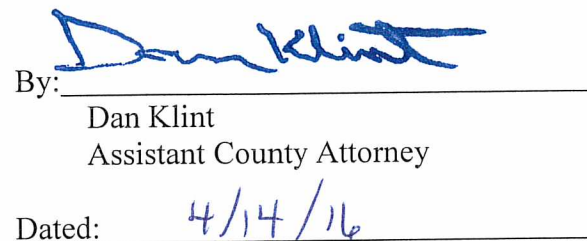 Dan Klint
By:
Dan Klint
Assistant County Attorney
Dated: 4/14/16